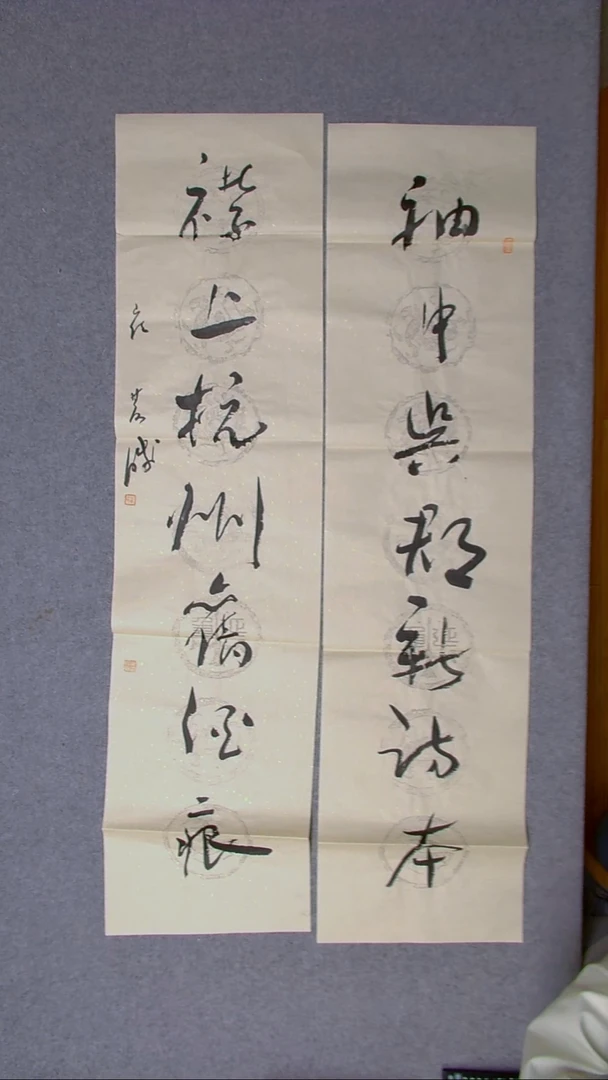 袖中吳郡新詩本
襟上杭州舊酒痕